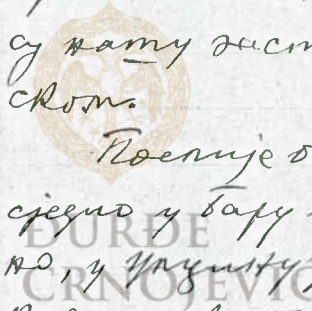 су нашу заст
ском.
Послије в
сједио у Бару
но, у Улцињу,
ĐURĐE
CRNOJEVIĆ